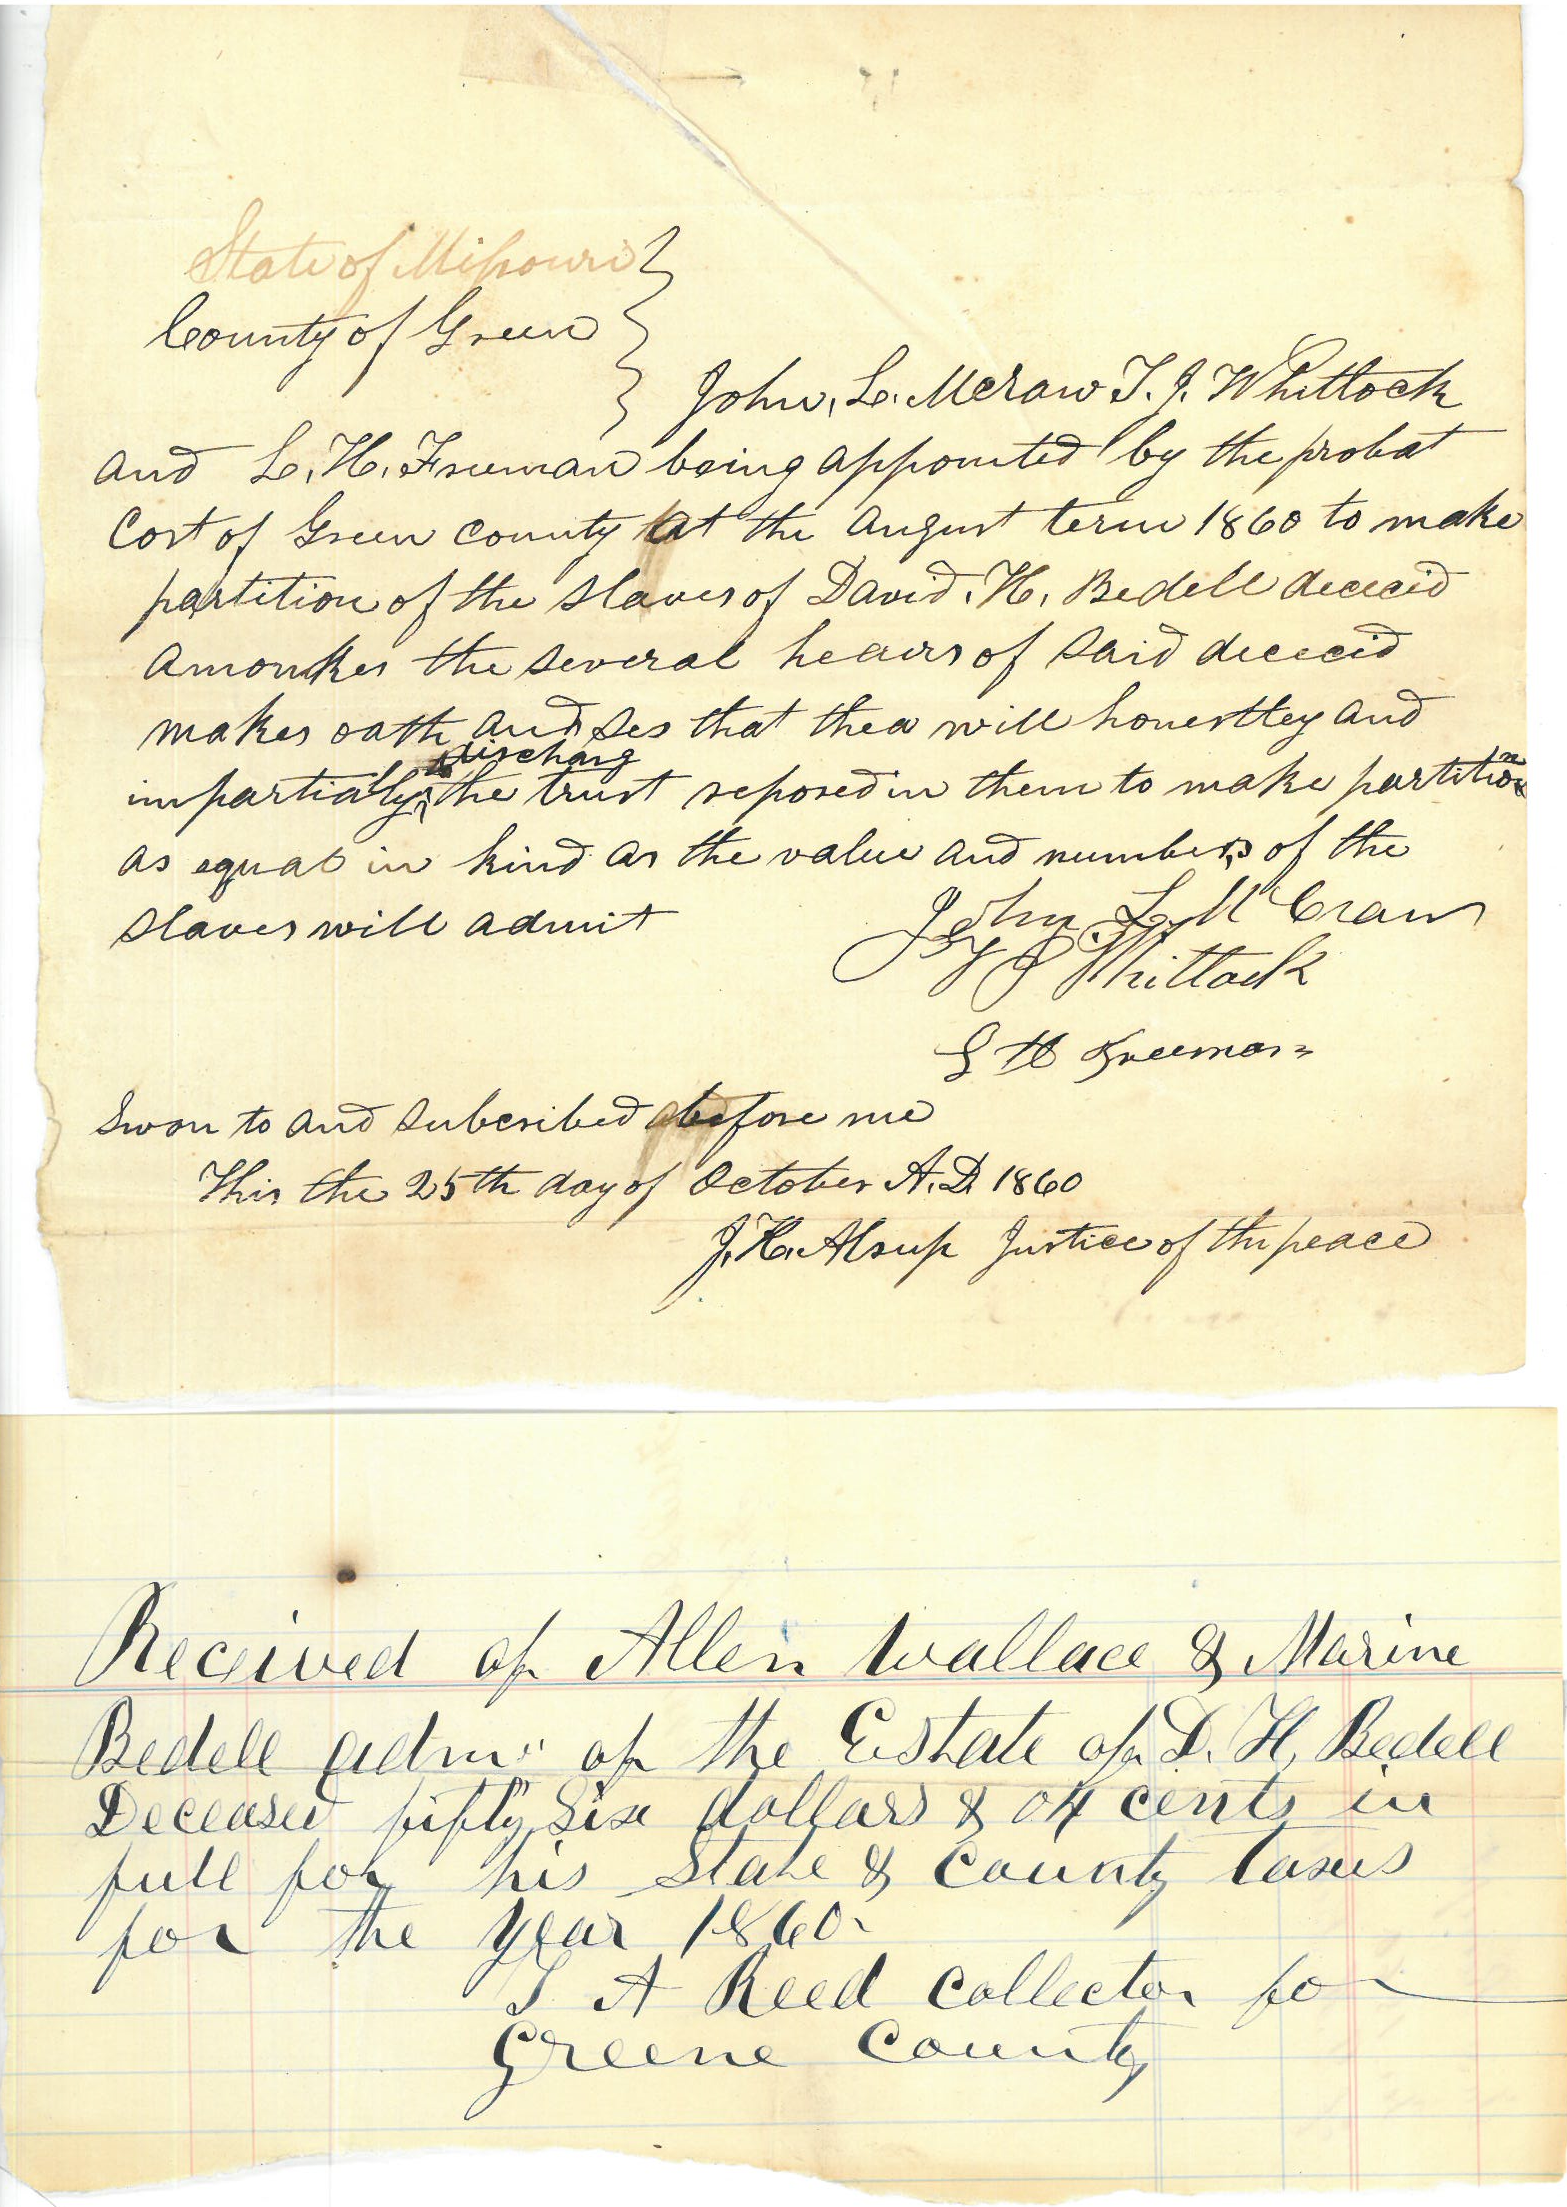 State of Missouri
County of Green
John, L. McCraw T. J. Whittock
and L. H. Freeman being appointed by the probat
Cort of Green county at the august term 1860 to make
partition of the slaves of David. H. Bedell dececid
amonkes the several heairs of said dececid
makes oath and ses that thea will honestley and
discharg
impartialy the trust reposed in them to make partition
as equal in kind as the value and numbers of the
slaves will admit
John L McCraw
T J Whittock
L H Freeman
Swon to and subcribed before me
This the 25th day of October A.D. 1860
J. H. Alsup Justice of the peace
Received of Allen Wallace & Marine
Bedell adm" of the Estate of D. H, Bedell
Deceased fifty Six dollars & 04 cents in
full for his State & County taxes
for the year 1860.
T A Reed Collector for
Greene County